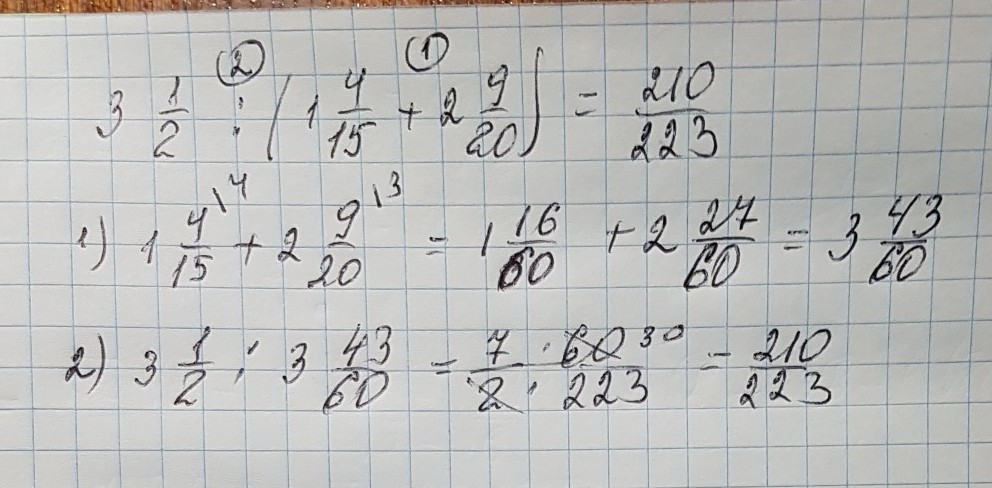 3 1/2 ② : ( 1 4/15 ① + 2 9/20 ) = 210/223
1) 1 4/15 \4 + 2 9/20 \3 = 1 16/60 + 2 27/60 = 3 43/60
2) 3 1/2 : 3 43/60 = 7 · 60 30 / 2 · 223 = 210/223